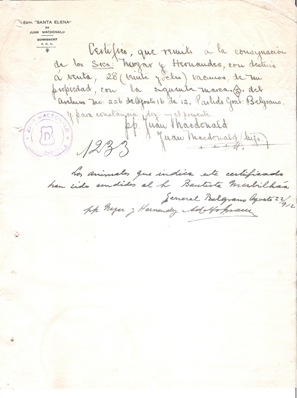 "SANTA ELENA"
DE
JUAN MACDONALD
BONNEMENT
F. C. S.
Certifico, que remití a la consignacion
de los Sres. Meyer y Hernandez, con destino
a venta, 28 (veinte y ocho) vacunos de mi
propiedad, con la siguiente marca, del
Partido Gral Belgrano,
para constancia doy el presente
pp. Juan Macdonald
Juan Macdonald (hijo)
1233
Los animales que indica este certificado
han sido vendidos al Sr Bautista
General Belgrano Agosto 22/912
pp. Meyer y Hernandez